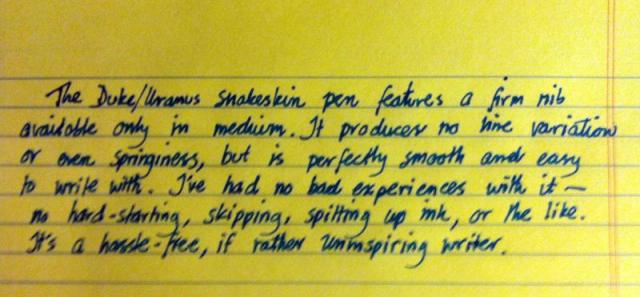 The Duke/Uranus snakeskin pen features a firm nib
available only in medium. It produces no line variation
or even springiness, but is perfectly smooth and easy
to write with. I've had no bad experiences with it —
no hard-starting, skipping, spitting up ink, or the like.
It's a hassle-free, if rather uninspiring writer.